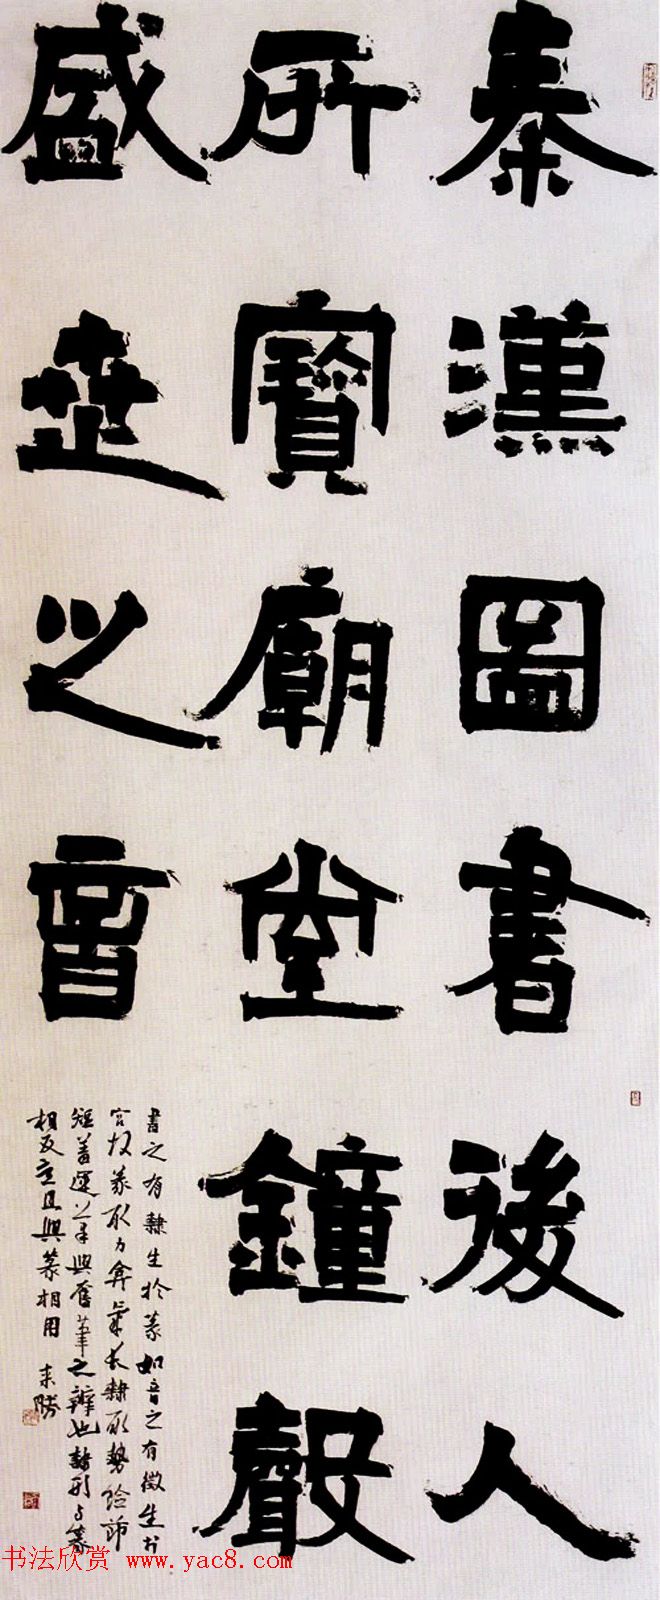 秦漢圖書後人
所寶廟堂鐘聲
盛世之音
書之有隸生於篆如音之有徵生於
宮故篆取力弇氣長隸取勢險節
短蓋運筆與奮筆之辨也隸形与篆
相反宜與篆相用 来勝
书法欣赏 www.yac8.com